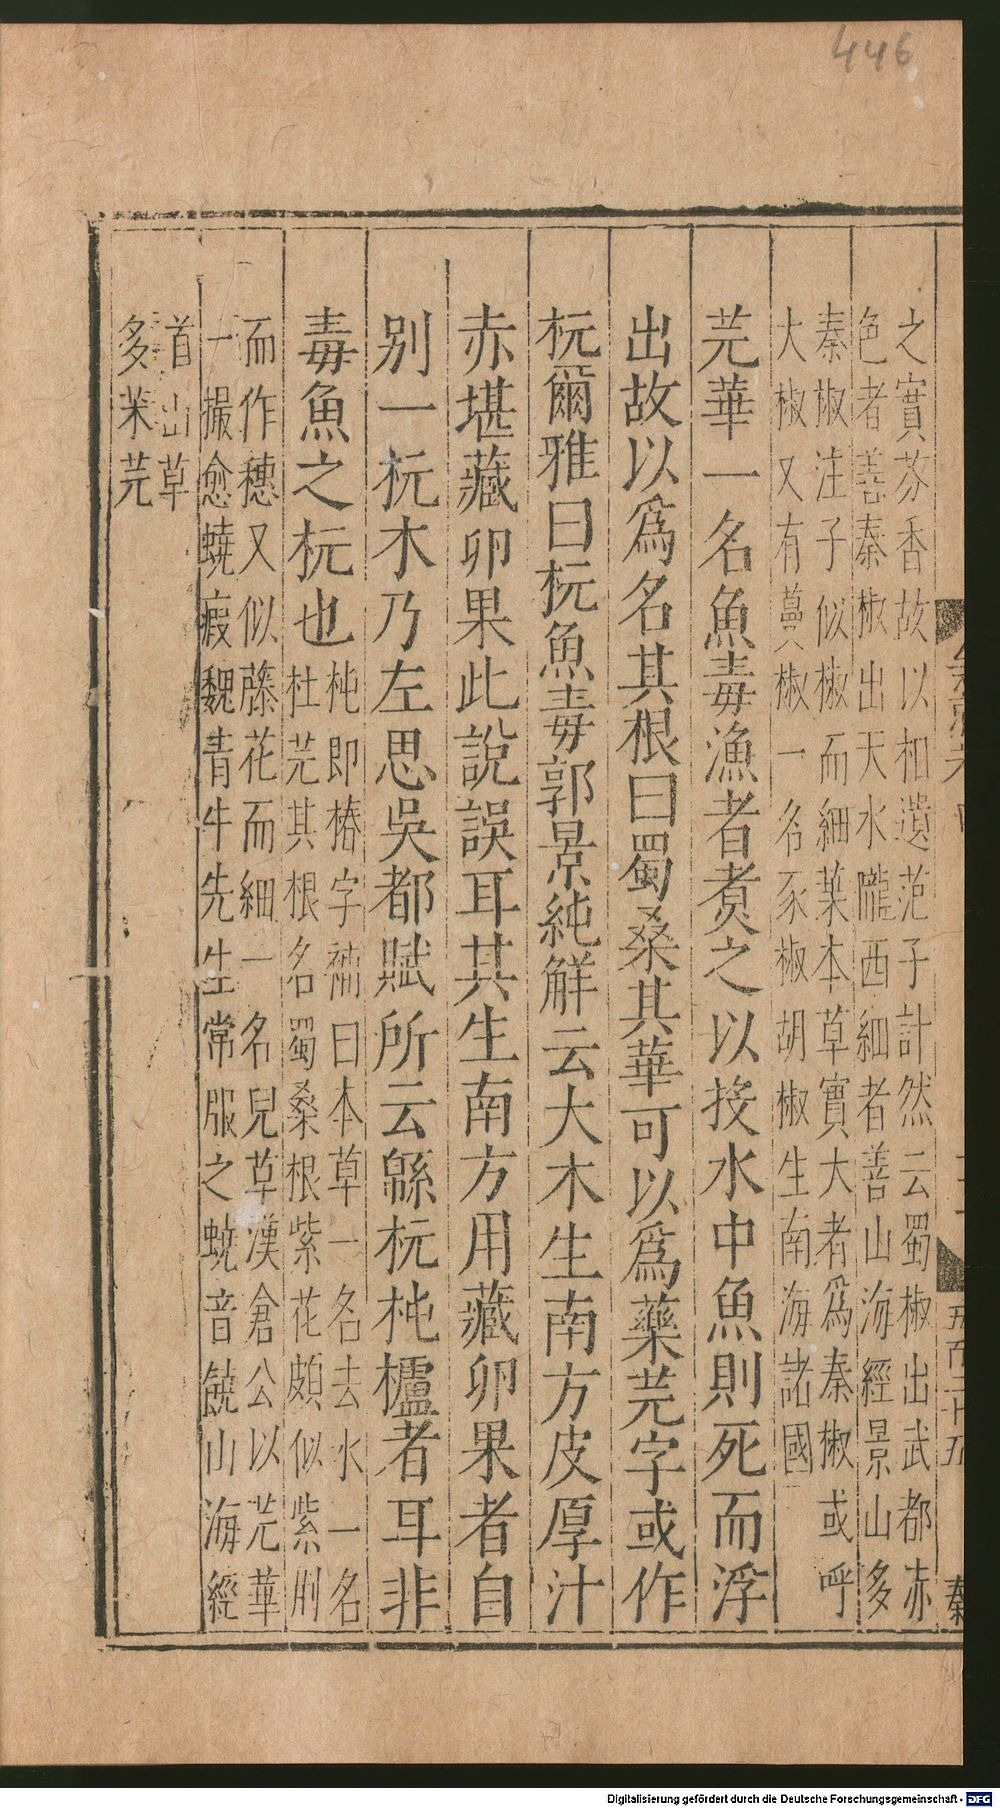 446
之實芬香故以相遺范子計然云蜀椒出武都赤
色者善秦椒出天水隴西細者善山海經景山多
秦椒注子似椒而細葉本草實大者爲秦椒或呼
大椒又有蔓椒一名豕椒胡椒生南海諸國
芫華一名魚毒漁者煑之以投水中魚則死而浮
出故以爲名其根曰蜀桑其華可以爲藥芫字或作
杬爾雅曰杬魚毒郭景純解云大木生南方皮厚汁
赤堪藏卵果此說誤耳其生南方用藏卵果者自
别一杬木乃左思吳都賦所云緜杬杶櫨者耳非
毒魚之杬也
杶即椿字補曰本草一名去水一名
杜芫其根名蜀桑根紫花頗似紫荆
而作穗又似藤花而細一名兒草漢倉公以芫華
一撮愈蟯瘕魏青牛先生常服之蟯音饒山海經
首山草
多芫
秦
Digitalisierung gefördert durch die Deutsche Forschungsgemeinschaft - DFG